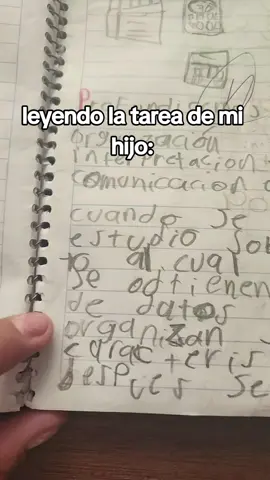 leyendo la tarea de mi
hijo:
organización
interpretacion
comunicacion
cuando se
estudio
al cual
se odtienen
de datos
organizan
carac teris
despues se